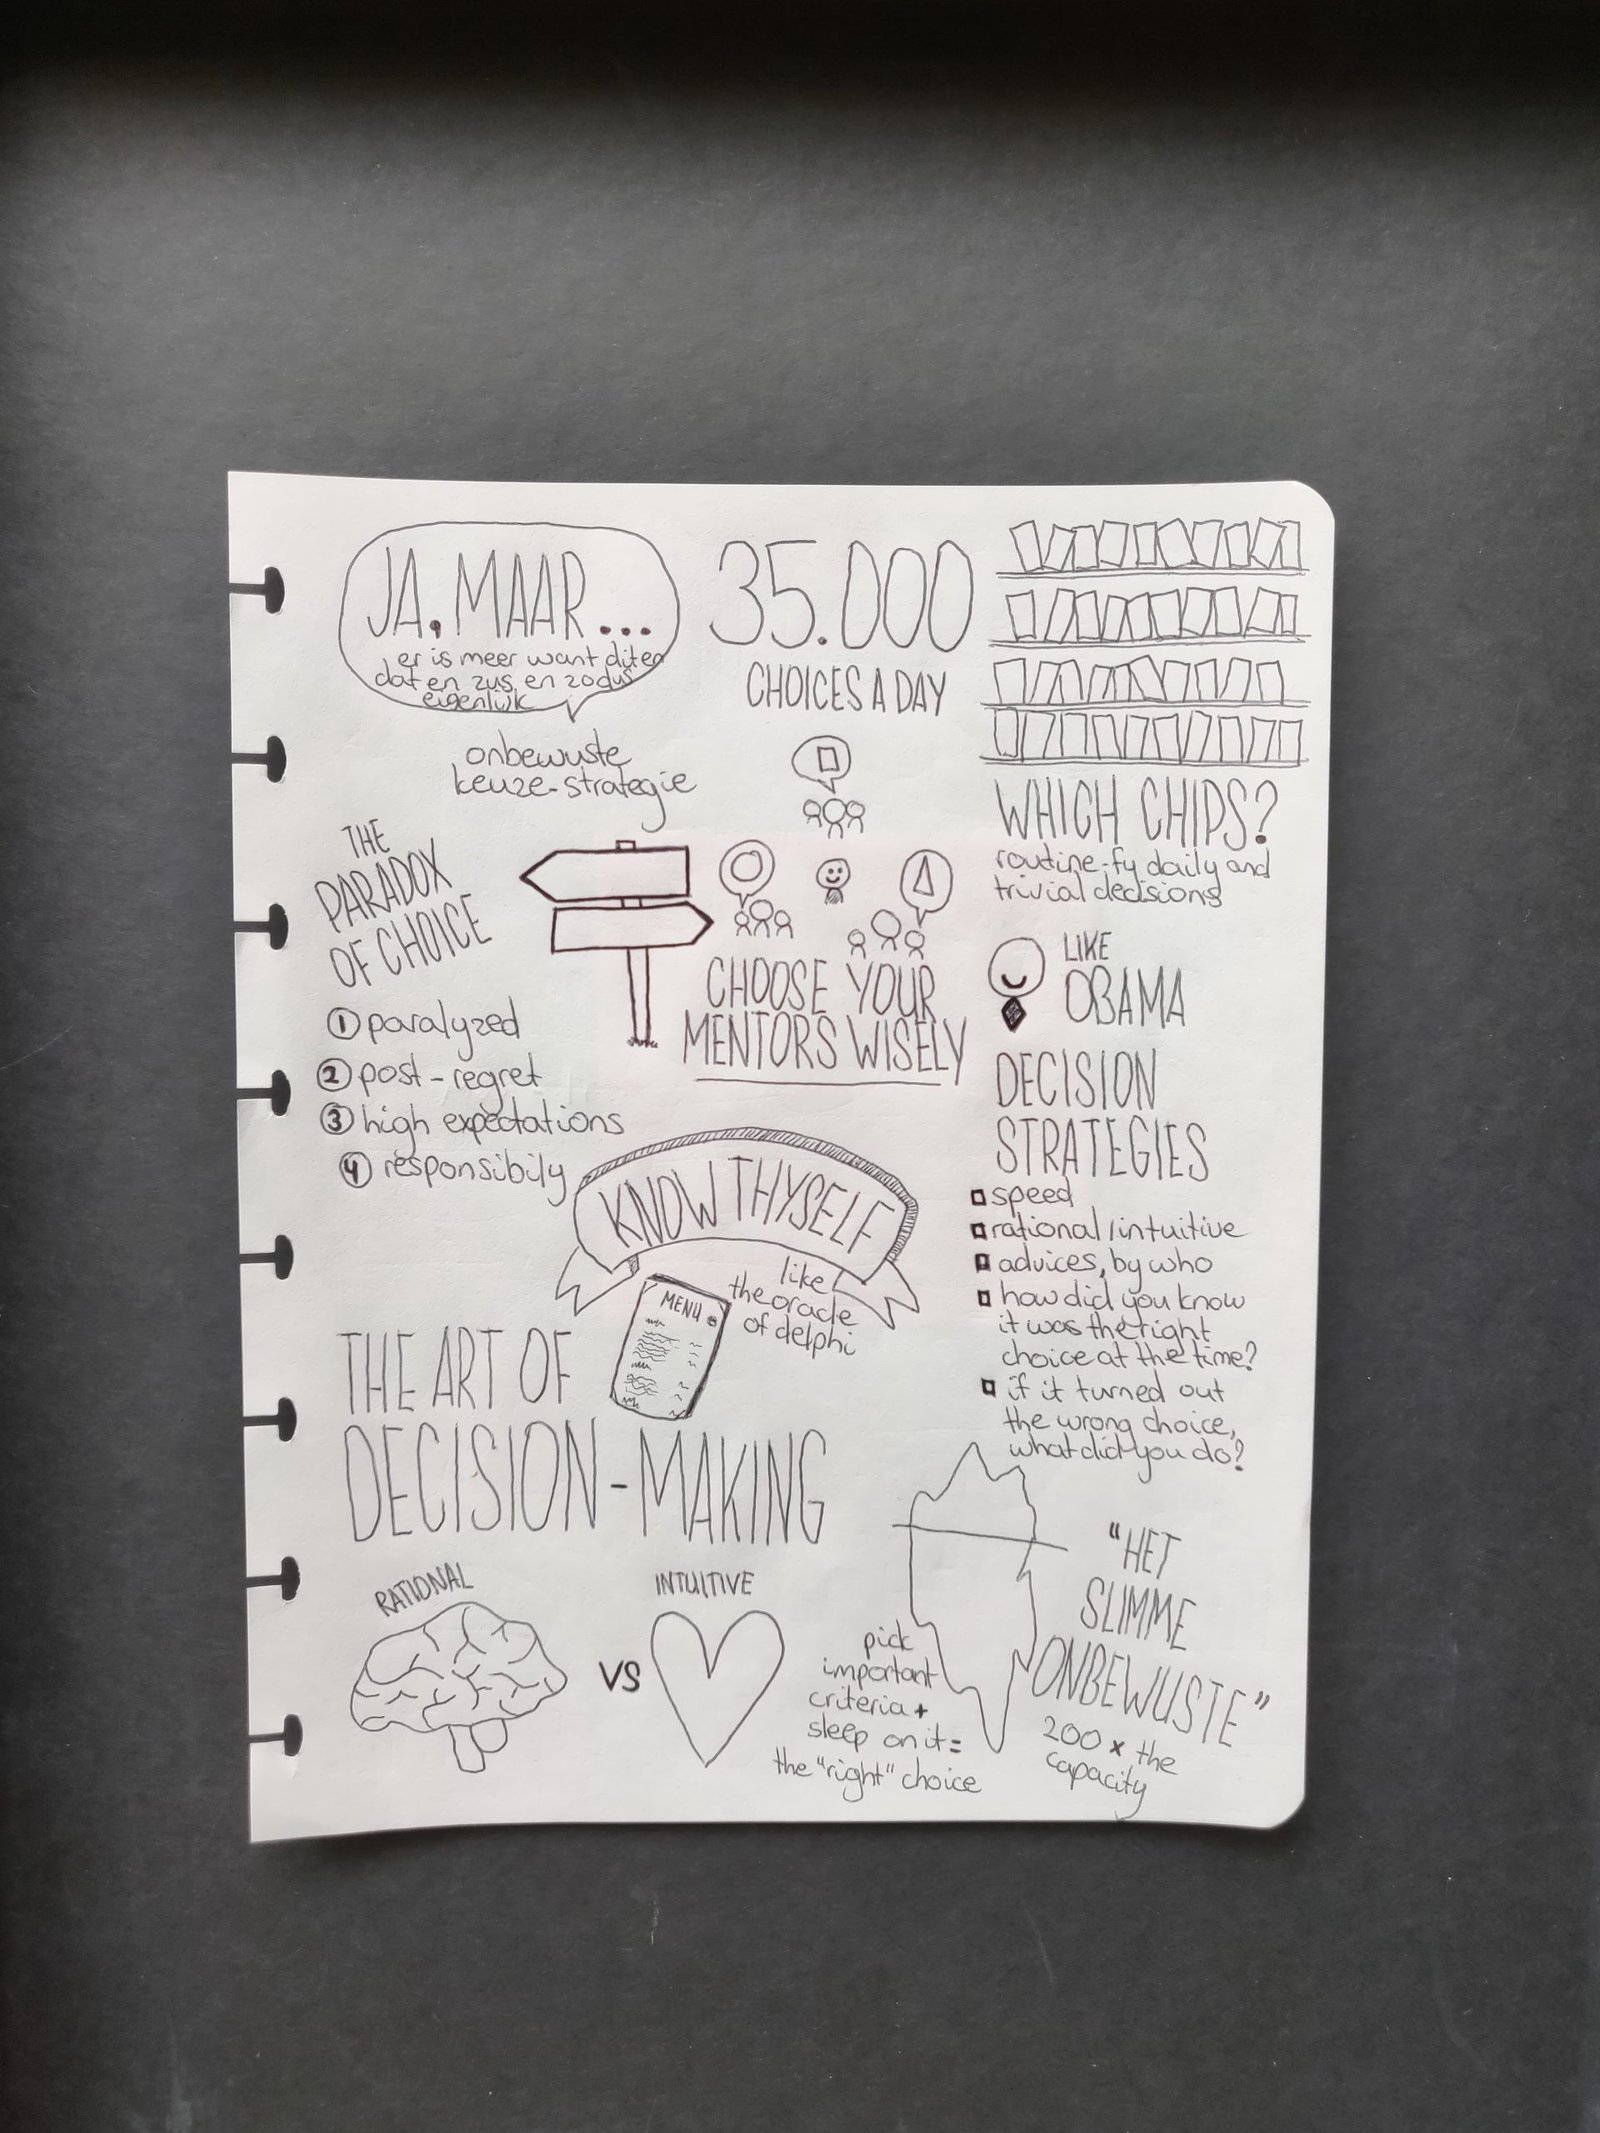 JA, MAAR...
er is meer want dit en
dat en zus en zo dus
eigenlijk
onbewuste
keuze-strategie
35.000
CHOICES A DAY
WHICH CHIPS?
routine-fy daily and
trivial decisions
LIKE
OBAMA
THE
PARADOX
OF CHOICE
1 paralyzed
2 post-regret
3 high expectations
4 responsibily
CHOOSE YOUR
MENTORS WISELY
DECISION
STRATEGIES
speed
rational/intuitive
advices, by who
how did you know
it was the right
choice at the time?
if it turned out
the wrong choice,
what did you do?
KNOW THYSELF
like
the oracle
of delphi
MENU
THE ART OF
DECISION-MAKING
RATIONAL
VS
INTUITIVE
pick
important
criteria +
sleep on it =
the "right" choice
"HET
SLIMME
ONBEWUSTE"
200 x the
capacity